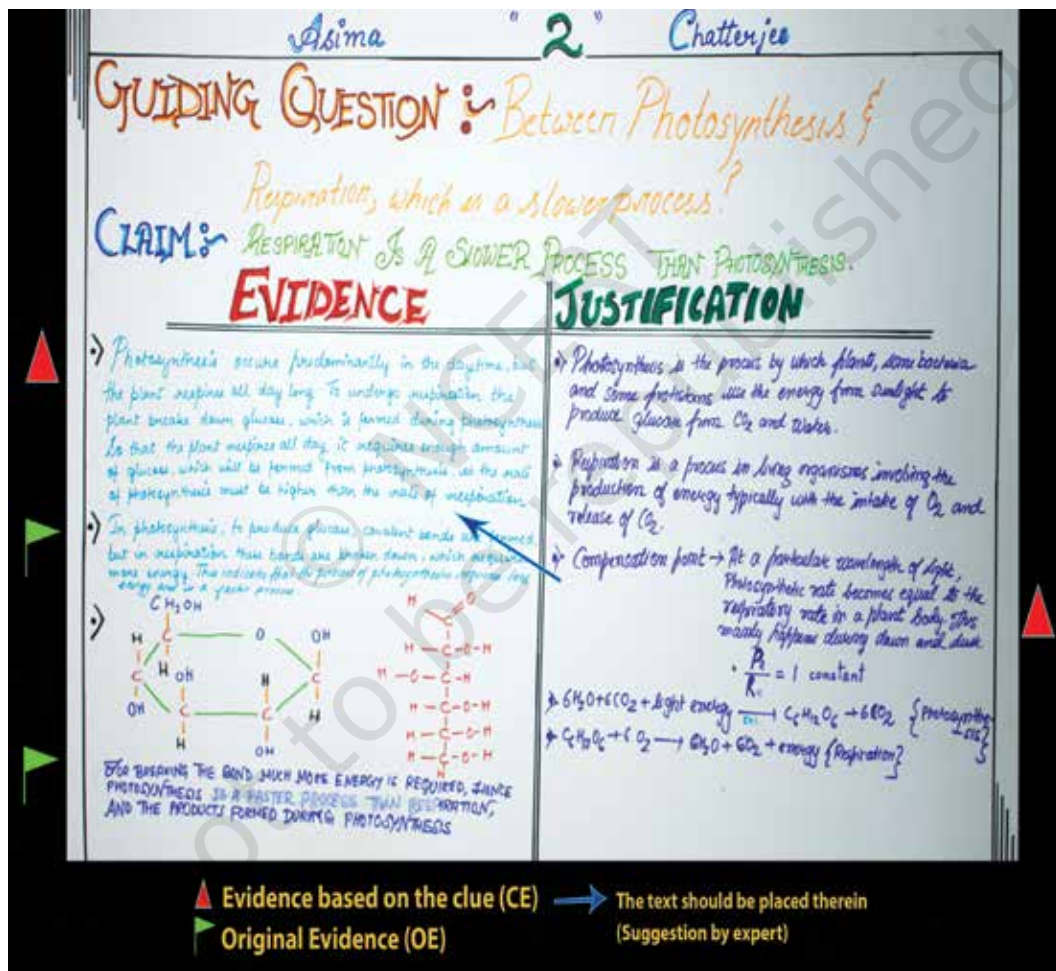 Asima "2" Chatterjee
GUIDING QUESTION :~ Between Photosynthesis &
Respiration, which is a slower process?
CLAIM:~ RESPIRATION IS A SLOWER PROCESS THAN PHOTOSYNTHESIS.
EVIDENCE
Photosynthesis occurs predominantly in the daytime, but
the plant respires all day long. To undergo respiration the
plant breaks down glucose, which is formed during photosynthesis
So that the plant respires all day, it requires enough amount
of glucose, which will be formed from photosynthesis so the rate
of photosynthesis must be higher than the rate of respiration.
In photosynthesis, to produce glucose, covalent bonds are formed
but in respiration these bonds are broken down, which requires
more energy. This indicates that the process of photosynthesis requires less
energy and is a faster process.
CH2OH
H C O OH
H
C OH H C
OH C C H
H OH
H O
C
H C O-H
H-O C H
H C O-H
H C O-H
H C O-H
H
FOR BREAKING THE BOND MUCH MORE ENERGY IS REQUIRED, HENCE
PHOTOSYNTHESIS IS A FASTER PROCESS THAN RESPIRATION,
AND THE PRODUCTS FORMED DURING PHOTOSYNTHESIS
JUSTIFICATION
Photosynthesis is the process by which plants, some bacteria
and some protistans use the energy from sunlight to
produce glucose from CO2 and water.
Respiration is a process in living organisms involving the
production of energy typically with the intake of O2 and
release of CO2.
Compensation point → At a particular wavelength of light,
Photosynthetic rate becomes equal to the
respiratory rate in a plant body. This
mostly happens during dawn and dusk
= 1 constant
6H2O+6CO2+light energy → C6H12O6 +6O2 {Photosynthe-
sis}
C6H12O6+6O2 → 6H2O + 6CO2 + energy {Respiration}
© NCERT
not to be republished
Evidence based on the clue (CE) The text should be placed therein
Original Evidence (OE) (Suggestion by expert)